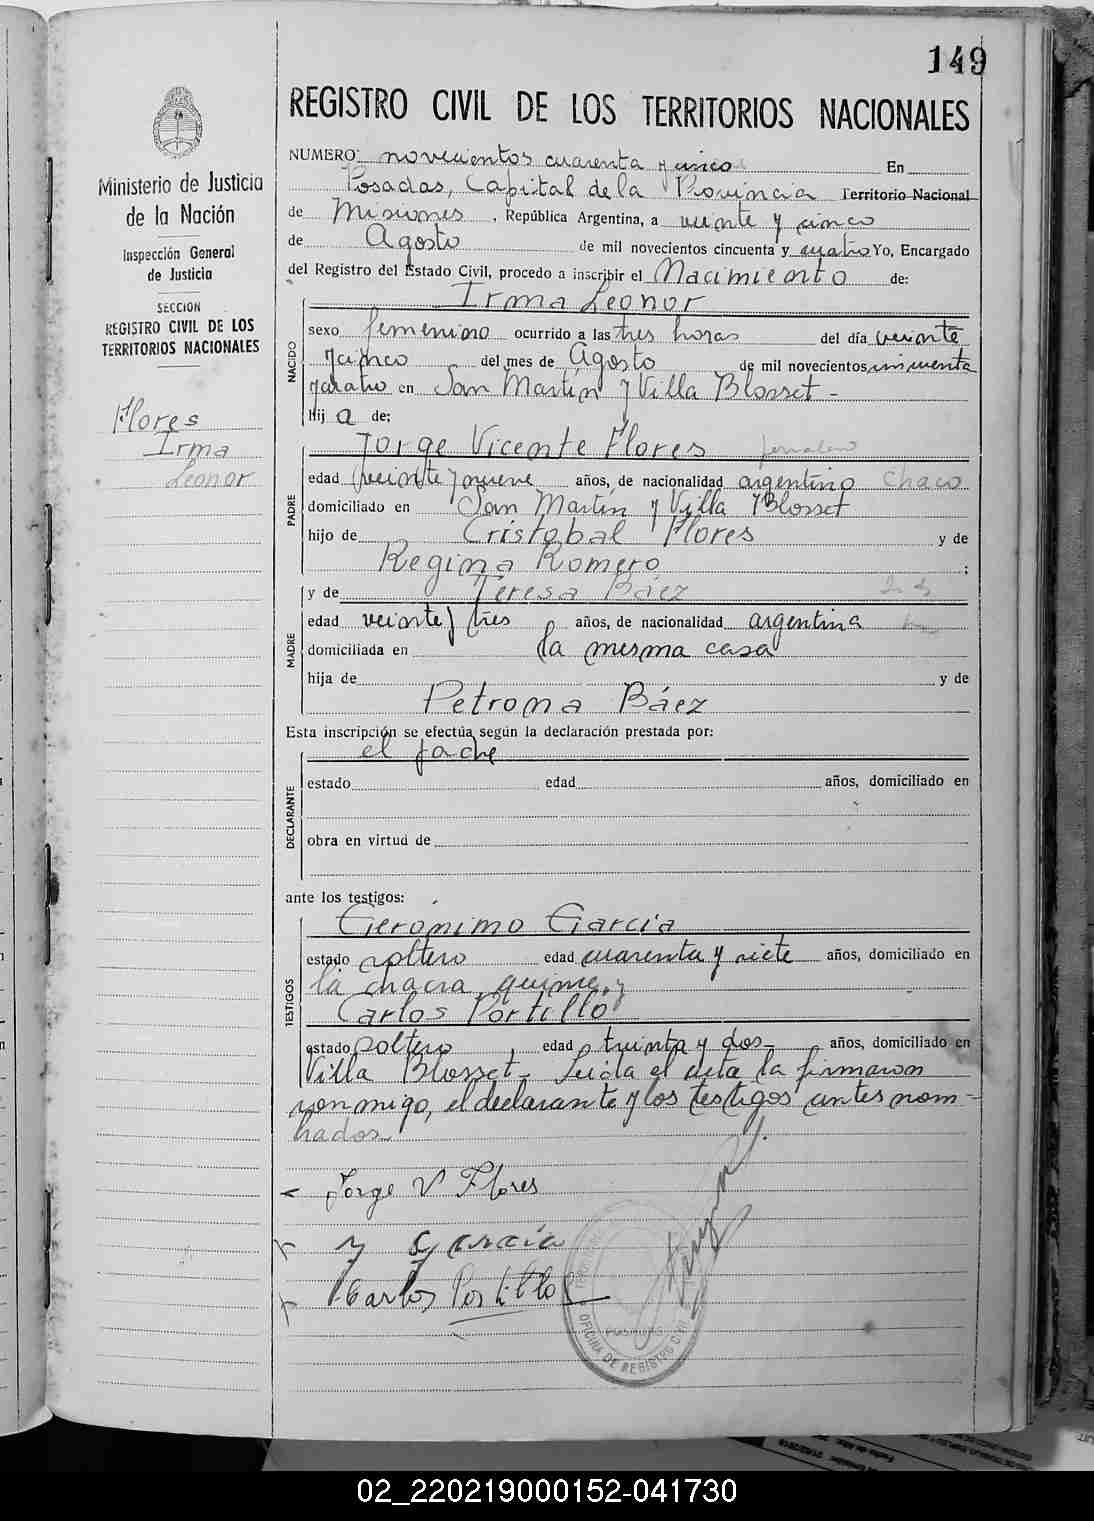 149
REGISTRO CIVIL DE LOS TERRITORIOS NACIONALES
Ministerio de Justicia
de la Nación
Inspección General
de Justicia
SECCIÓN
REGISTRO CIVIL DE LOS
TERRITORIOS NACIONALES
Flores
Irma
Leonor
NUMERO: novecientos cuarenta y cinco En
Posadas, Capital de la Provincia Territorio Nacional
de Misiones, República Argentina, a veinte y cinco
de Agosto de mil novecientos cincuenta y cuatro Yo, Encargado
del Registro del Estado Civil, procedo a inscribir el Nacimiento de:
NACIDO
Irma Leonor
sexo femenino ocurrido a las tres horas del día veinte
y cinco del mes de Agosto de mil novecientos cincuenta
y cuatro en San Martín y Villa Blosset -
Hij a de:
PADRE
Jorge Vicente Flores
edad veinte y nueve años, de nacionalidad argentino Chaco
domiciliado en San Martín y Villa Blosset
hijo de Cristobal Flores y de
Regina Romero ;
MADRE
y de Teresa Báez
edad veinte y tres años, de nacionalidad argentina
domiciliada en la misma casa
hija de y de
Petrona Báez
Esta inscripción se efectúa según la declaración prestada por:
DECLARANTE
el padre
estado edad años, domiciliado en
obra en virtud de
ante los testigos:
TESTIGOS
Gerónimo García
estado soltero edad cuarenta y siete años, domiciliado en
la chacra quince, y
Carlos Portillo
estado soltero, edad trinta y dos- años, domiciliado en
Villa Blosset- Leida el acta la firmaron
conmigo, el declarante y los testigos antes nom-
brados-
Jorge V Flores
y García
Carlos Portillo
OFICINA DE REGISTRO CIVIL
02_220219000152-041730